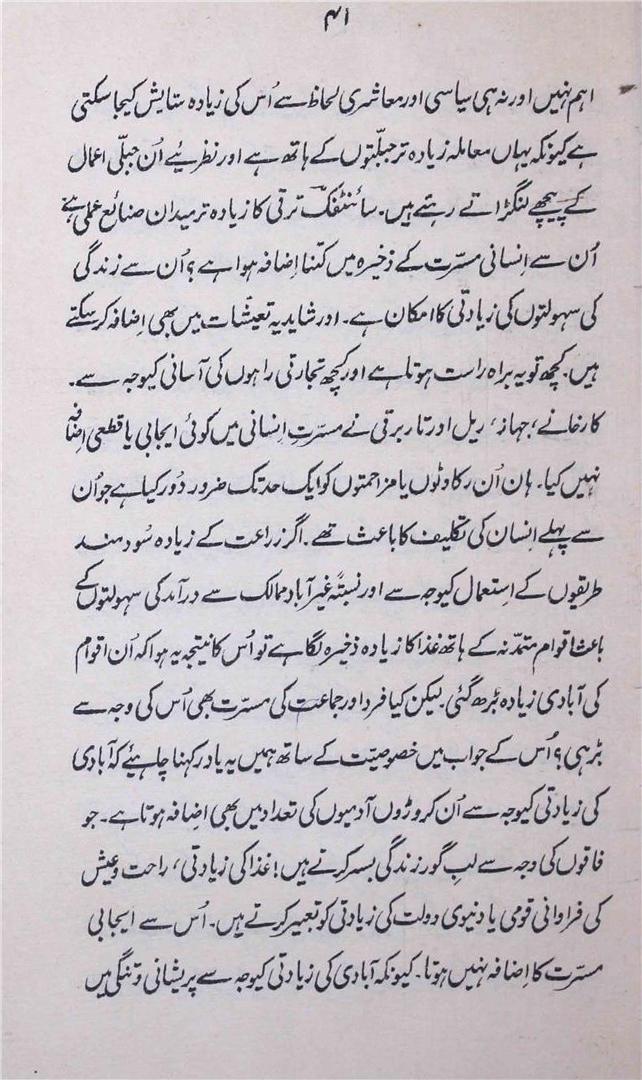 ۴۱
اہم نہیں اور نہ ہی سیاسی اور معاشری لحاظ سے اُس کی زیادہ ستایش کیجا سکتی
ہے کیونکہ یہاں معاملہ زیادہ تر جبلّتوں کے ہاتھ ہے اور نظریئے اُن جبلّی اعمال
کے پیچھے لنگڑاتے رہتے ہیں۔ سائنٹفک ترقی کا زیادہ تر میدان صنائع عملی ہے
اُن سے اِنسانی مسّرت کے ذخیرہ میں کتنا اِضافہ ہوا ہے؟ اُن سے زندگی
کی سہولتوں کی زیادتی کا امکان ہے۔ اور شاید یہ تعیشّات میں بھی اِضافہ کر سکتے
ہیں۔ کچھ تو یہ براہ راست ہوتا ہے اور کچھ تجارتی راہوں کی آسانی کیوجہ سے۔
کارخانے، جہاز، ریل اور تار برقی نے مسرّتِ اِنسانی میں کوئی ایجابی یا قطعی اِضافہ
نہیں کیا۔ ہان اُن رکاوٹوں یا مزاحمتوں کو ایک حد تک ضرور دُور کیا ہے جو اُن
سے پہلے اِنسان کی تکلیف کا باعث تھے۔ اگر زراعت کے زیادہ سُود مند
طریقوں کے اِستعمال کیوجہ سے اور نسبتہً غیر آباد ممالک سے درآمد کی سہولتوں کے
باعث اقوام متمدّنہ کے ہاتھ غذا کا زیادہ ذخیرہ لگا ہے تو اُس کا نتیجہ یہ ہوا کہ اُن اقوام
کی آبادی زیادہ بڑھ گئی۔ لیکن کیا فرد اور جماعت کی مسّرت بھی اُس کی وجہ سے
بڑھی؟ اُس کے جواب میں خصوصیّت کے ساتھ ہمیں یہ یاد رکہنا چاہیئے کہ آبادی
کی زیادتی کیوجہ سے اُن کروڑوں آدمیوں کی تعداد میں بھی اِضافہ ہوتا ہے۔ جو
فاقوں کی وجہ سے لبِ گور زندگی بسر کرتے ہیں! غذا کی زیادتی، راحت و عیش
کی فراوانی قومی یا دنیوی دولت کی زیادتی کو تعبیر کرتے ہیں۔ اُس سے ایجابی
مسرّت کا اِضافہ نہیں ہوتا۔ کیونکہ آبادی کی زیادتی کیوجہ سے پریشانی و تنگی میں